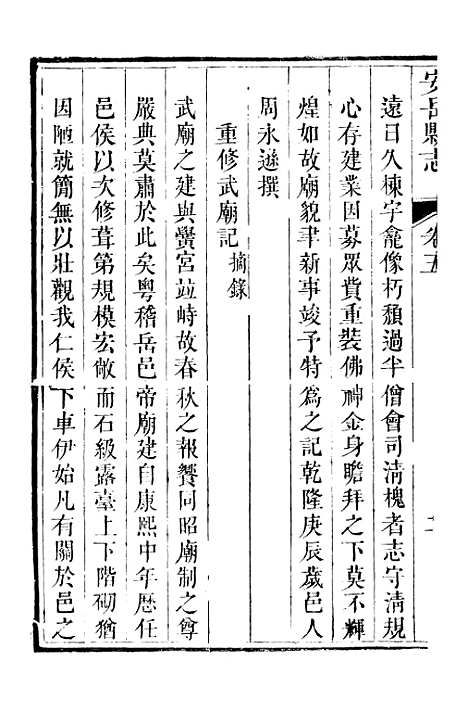 安岳縣志
卷五
遠日久棟宇龕像朽頽過半僧會司淸槐者志守淸規
心存建業因募眾貲重裝佛神金身瞻拜之下莫不輝
煌如故廟貌聿新事竣予特爲之記乾隆庚辰歲邑人
周永遜撰
重修武廟記摘錄
武廟之建與黌宮竝峙故春秋之報饗同昭廟制之尊
嚴典莫肅於此矣粤稽岳邑帝廟建自康熙中年歷任
邑侯以次修葺第規模宏敞而石級露臺上下階砌猶
因陋就簡無以壯觀我仁侯下車伊始凡有關於邑之